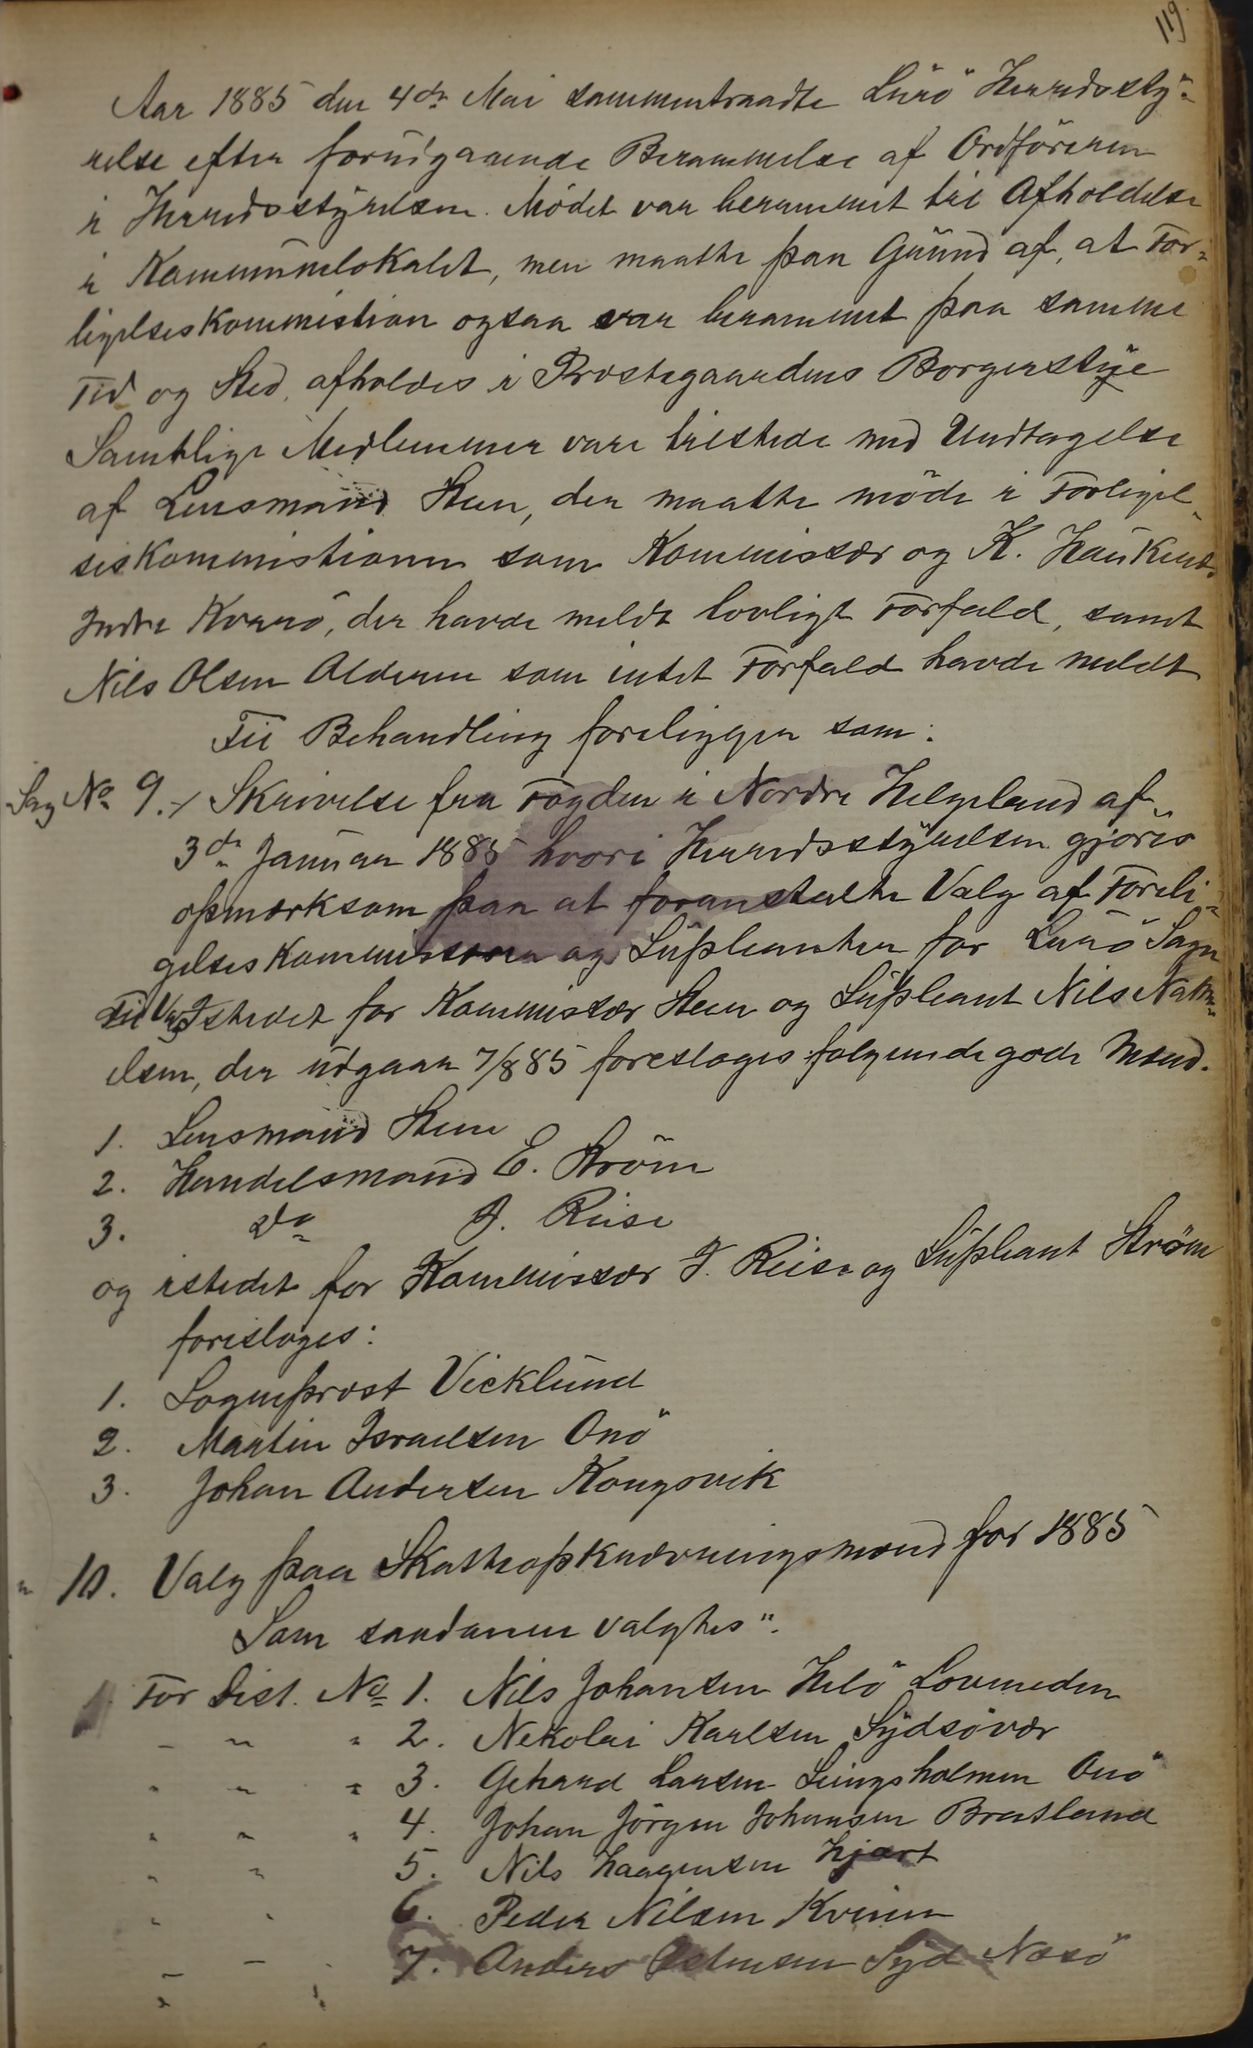 119.
Aar 1885 den 4de Mai sammentraadte Lurö Herredssty-
relse efter forudgaaende Berammelse af Ordföreren
i Herredsstyrelsen. Mödet var berammet til Afholdelse
i Kommunelokalet, men maatte paa Grund af, at For-
ligelseskommistion ogsaa var berammet paa samme
Tid og Sted, afholdes i Prostegaardens Borgerstue
Samtlige Medlemmer vare tilstede med Undtagelse
af Lensmand Steen, der maatte möde i Forligel-
seskommistionen som Kommissær og K. Haukenæs
Indre Kvarö, der havde meldt lovligt Forfald, samt
Nils Olsen Alderen som intet Forfald havde meldt
Til Behandling foreligger som:
Sag No 9. Skrivelse fra Fogden i Nordre Helgeland af
3de Januar 1885 hvori Herredsstyrelsen gjöres
opmærksom paa at foranstalte Valg af Forli-
gelseskommissærer og Suppleanter for Lurö Sogn
Istedet for Kommissær Steen og Supleant Nils Natan-
elsen, der udgaar 7/8 85 foreslages folgende gode Mænd.
1. Lensmand Steen
2. Handelsmand E. Ström
3. do J. Riise
og istedet for Kommissær J. Riise og Supleant Ström
foreslages:
1. Sogneprost Vicklund
2. Martin Israelsen Onö
3. Johan Andersen Kongsvik
" 10. Valg paa Skatteopkrævningsmænd for 1885
Som saadanne valgtes".
For Dist. No 1. Nils Johansen Helö Lovunden
- " " 2. Nekolai Karlsen Sydsövær
" " " 3. Gerhard Larsen Lyngsholmen Onö
" " " 4. Johan Jörgen Johansen Bratland
" " 5. Nils Haagensen Hjart
" " 6. Peder Nilsen Kvinen
- - 7. Anders Estensen Syd Næsö